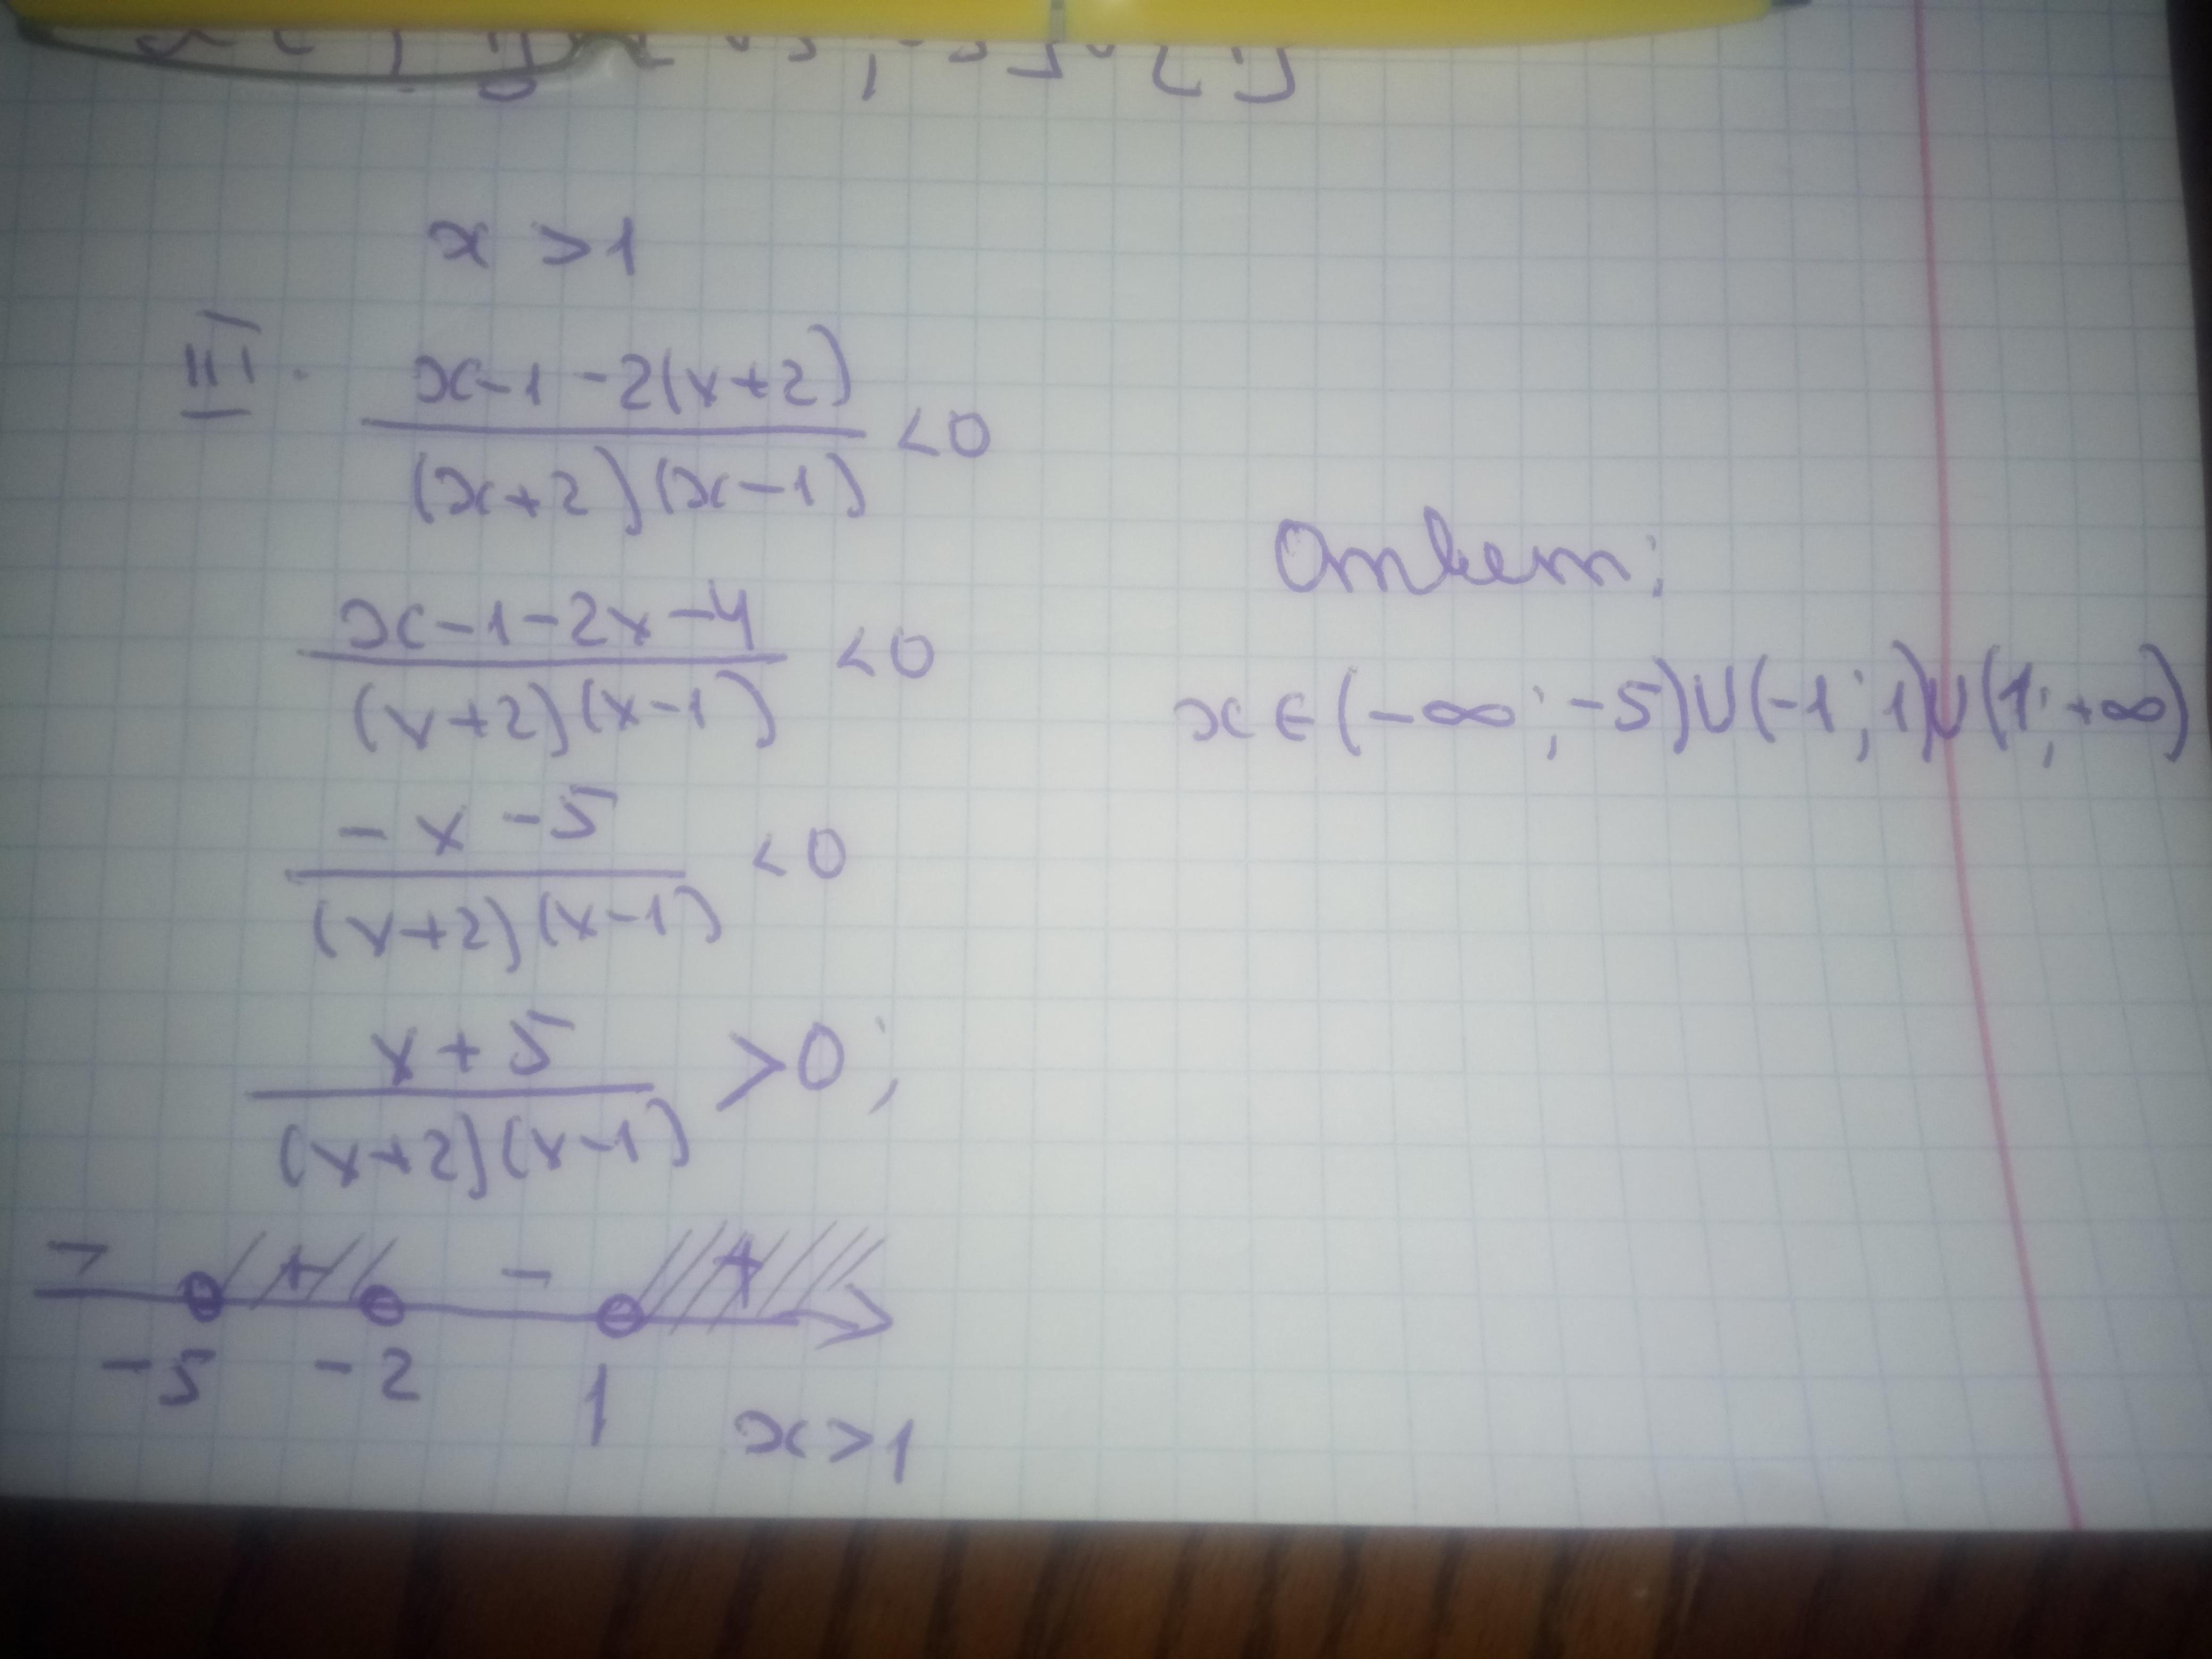 x > 1
III. (x-1-2(x+2))/((x+2)(x-1)) < 0
(x-1-2x-4)/((x+2)(x-1)) < 0
(-x-5)/((x+2)(x-1)) < 0
(x+5)/((x+2)(x-1)) > 0;
- + - +
-5 -2 1
x > 1
Ответ:
x ∈ (-∞; -5) ∪ (-1; 1) ∪ (1; +∞)